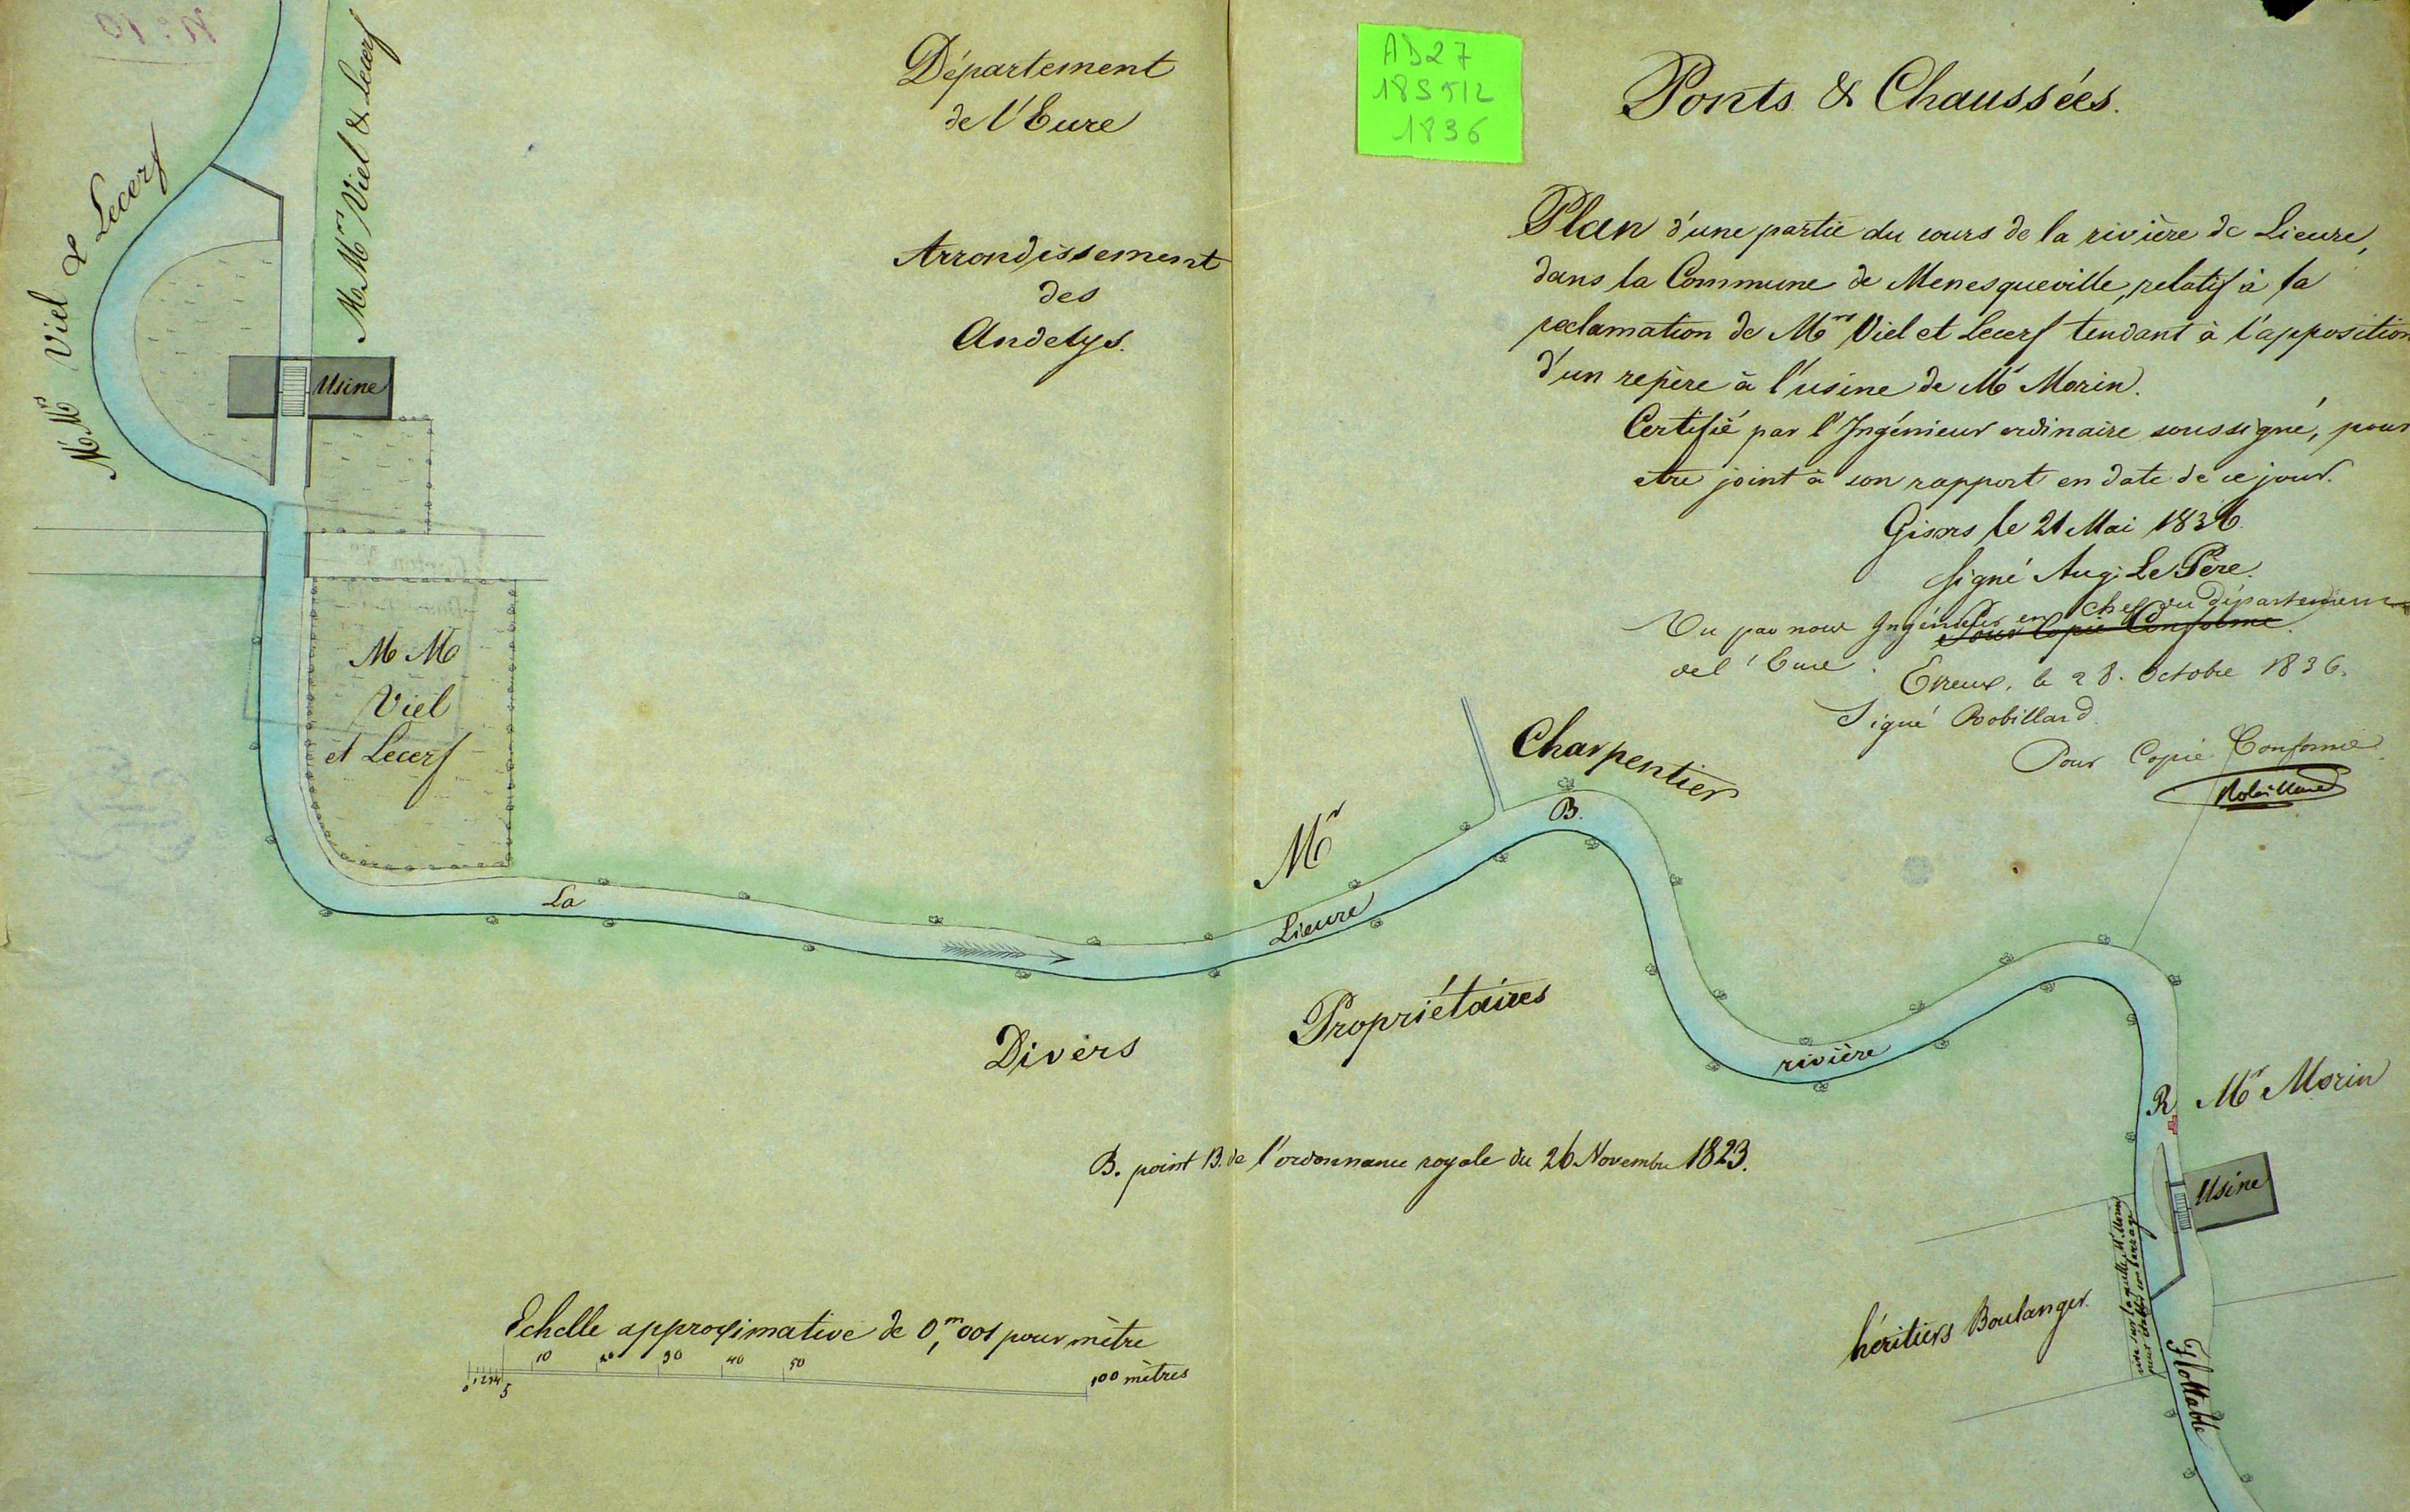 Département
de l'Eure
Arrondissement
des
Andelys.
AD27
18S512
1836
Ponts & Chaussées.
Plan d'une partie du cours de la rivière de Lieure,
dans la Commune de Menesqueville, relatif à la
reclamation de Mrs Viel et Lecerf tendant à l'apposition
d'un repère à l'usine de Mr Morin.
Certifié par l'Ingénieur ordinaire soussigné, pour
etre joint à son rapport en date de ce jour.
Gisors le 21 Mai 1836.
Signé Aug. Le Père.
Vu par nous Ingénieur en chef du département
Pour Copie Conforme
de l'Eure.
Evreux, le 28. Octobre 1836.
Signé Robillard
Pour Copie Conforme
Robillard
M.Mrs Viel & Lecerf
M.Mrs Viel & Lecerf
Usine
M M
Viel
et Lecerf
Mr
Charpentier
B.
La
Lieure
rivière
Flottable
Divers
Propriétaires
R
Mr Morin
Usine
héritiers Boulanger.
rive sur laquelle Mr Morin
peut établir son barrage
B. point B. de l'ordonnance royale du 26 Novembre 1823.
Echelle approximative de 0,m001 pour mètre
0 1 2 3 4 5 10 20 30 40 50 100 mètres